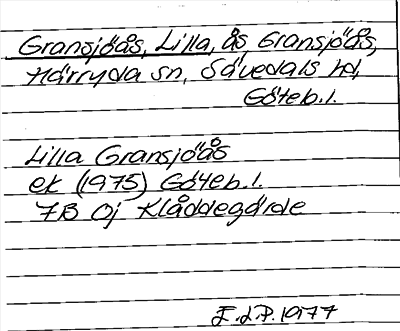 Gransjöås, Lilla, ås, Gransjöås,
Härryda sn, Sävedals hd,
Göteb. l.
Lilla Gransjöås
ek (1975) Göteb. l.
7B 0j Klåddegärde
E.d.P. 1977